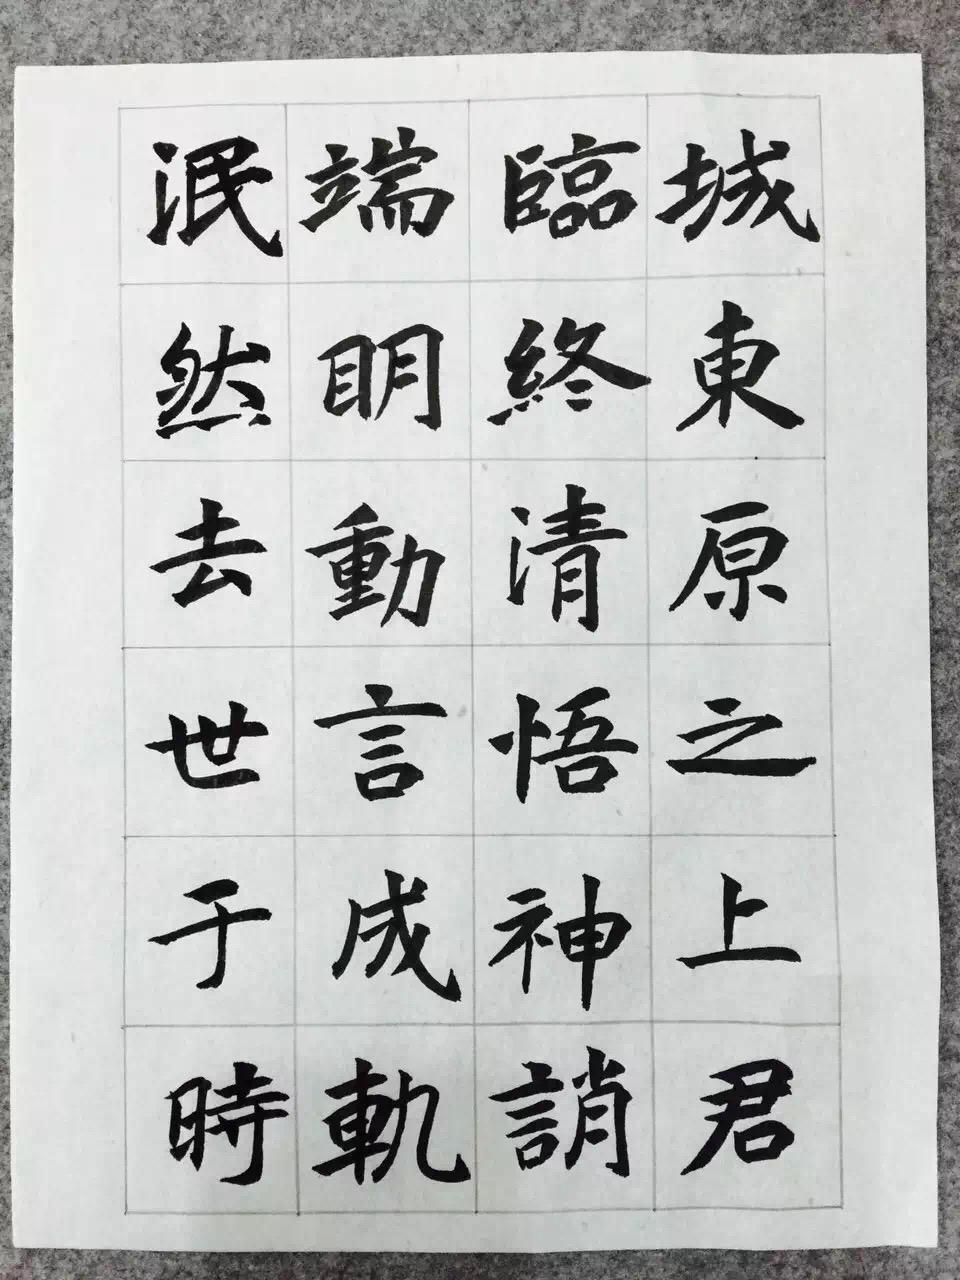 城東原之上君
臨終清悟神誚
端明動言成軌
泯然去世于時